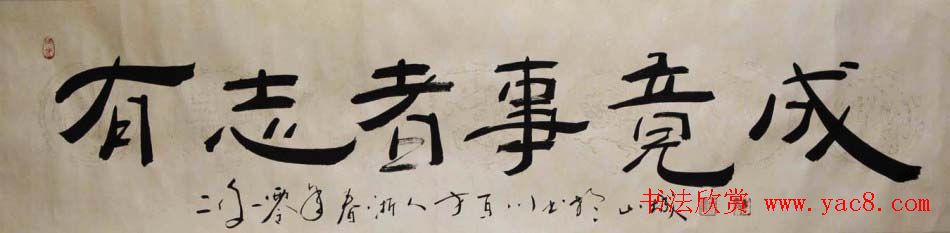 有志者事竟成
二零一零年春浙人方百川书於山城
书法欣赏 www.yac8.com